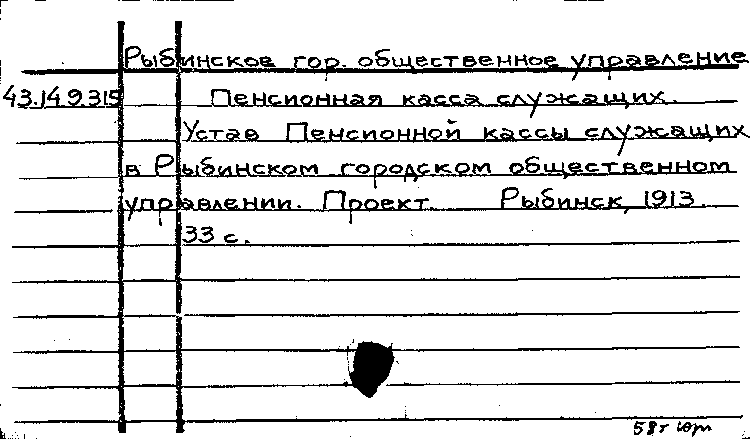 Рыбинское гор. общественное управление
43.14.9.315 Пенсионная касса служащих.
Устав Пенсионной кассы служащих
в Рыбинском городском общественном
управлении. Проект. Рыбинск, 1913.
33 с.
58т